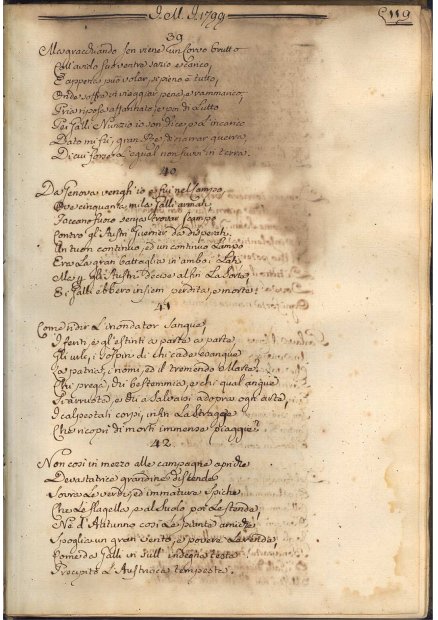 J. M. J. 1799
119
39
Ma gracchiando son viene un Corvo brutto
Coll'avido suo ventre sazio e stanco,
E appena può volar, sì pieno è tutto,
Onde soffre in viaggiar pene, e rammanco,
Pria riposa affannato, e poi di Lutto
Pei Galli Nunzio io son dice, ed
Dato mi fu, gran Re, di narrar guerra
Di cui forse equal non fuvvi in terra.
40
Da Genova vengh'io e fui nel Campo,
Ove cinquanta mila Galli armati,
Facean fuoco senza trovar scampo
Contro gli Austri Guerrier da disperati.
Un tuon continuo, ed un continuo Lampo
Era La gran battaglia in ambi i Lati,
Ma gli Austri Decise alfin La Sorte,
E i Galli ebbero insiem perdita, e morte.
41
Come ridir L'inondator Sangue,
I feriti, e gl'estinti a parte a parte,
Gli urli, i sospir di chi cade esangue
La patria, i nomi, ed il tremendo Marte.
Chi prega, Chi bestemmia, e chi qual angue
S'arruota, e chi a Salvarsi adopra ogn'arte,
I calpestati corpi, infin La Strage
Che ricoprì di morti immense piagge?
42
Non così in mezzo alle campagne apriche
Devastatrice grandine discende
Sovra Le verdi, ed immature Spiche
Che Le flagella e al Suolo poi Le stende,
Nè d'Autunno così Le piante amiche
Spoglia un gran Vento, e povere Le rende,
Come da Galli in sull'indegna testa
Precipitò L'Austriaca tempesta.